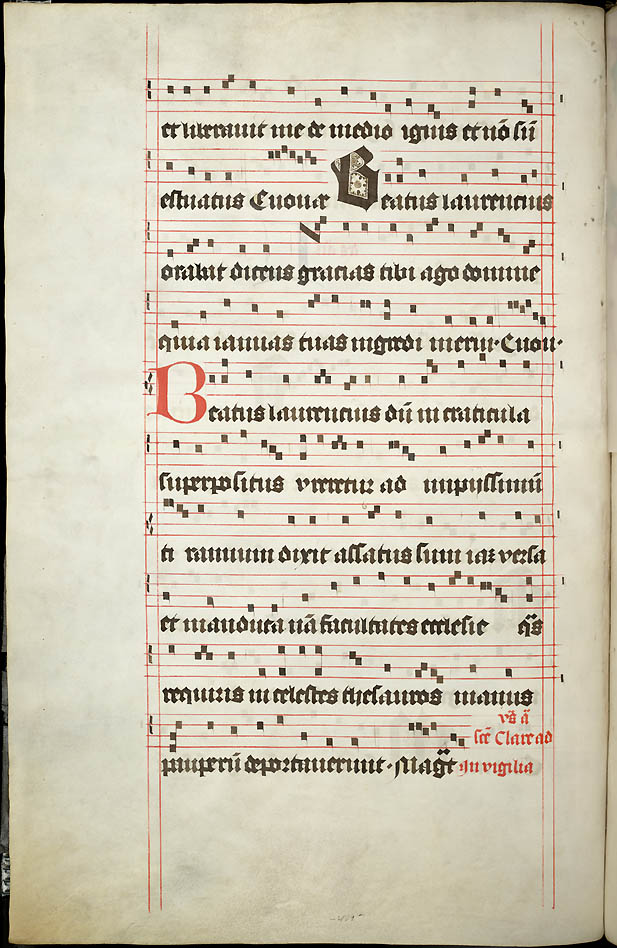 et liberauit me de medio ignis et nō sū
estuatus Euouae Beatus laurentius
orabat dicens gracias tibi ago domine
quia ianuas tuas ingredi merui · Euou ·
Beatus laurencius dū in craticula
superpositus vreretur ad impijssimū
ti rannum dixit assatus sum iaꝫ versa
et manduca nā facultates ecclesie q̄s
requiris in celestes thesauros manus
vs̄ ā
pauperū deportauerunt · Magt̄ In vigilia
scē Clare ad